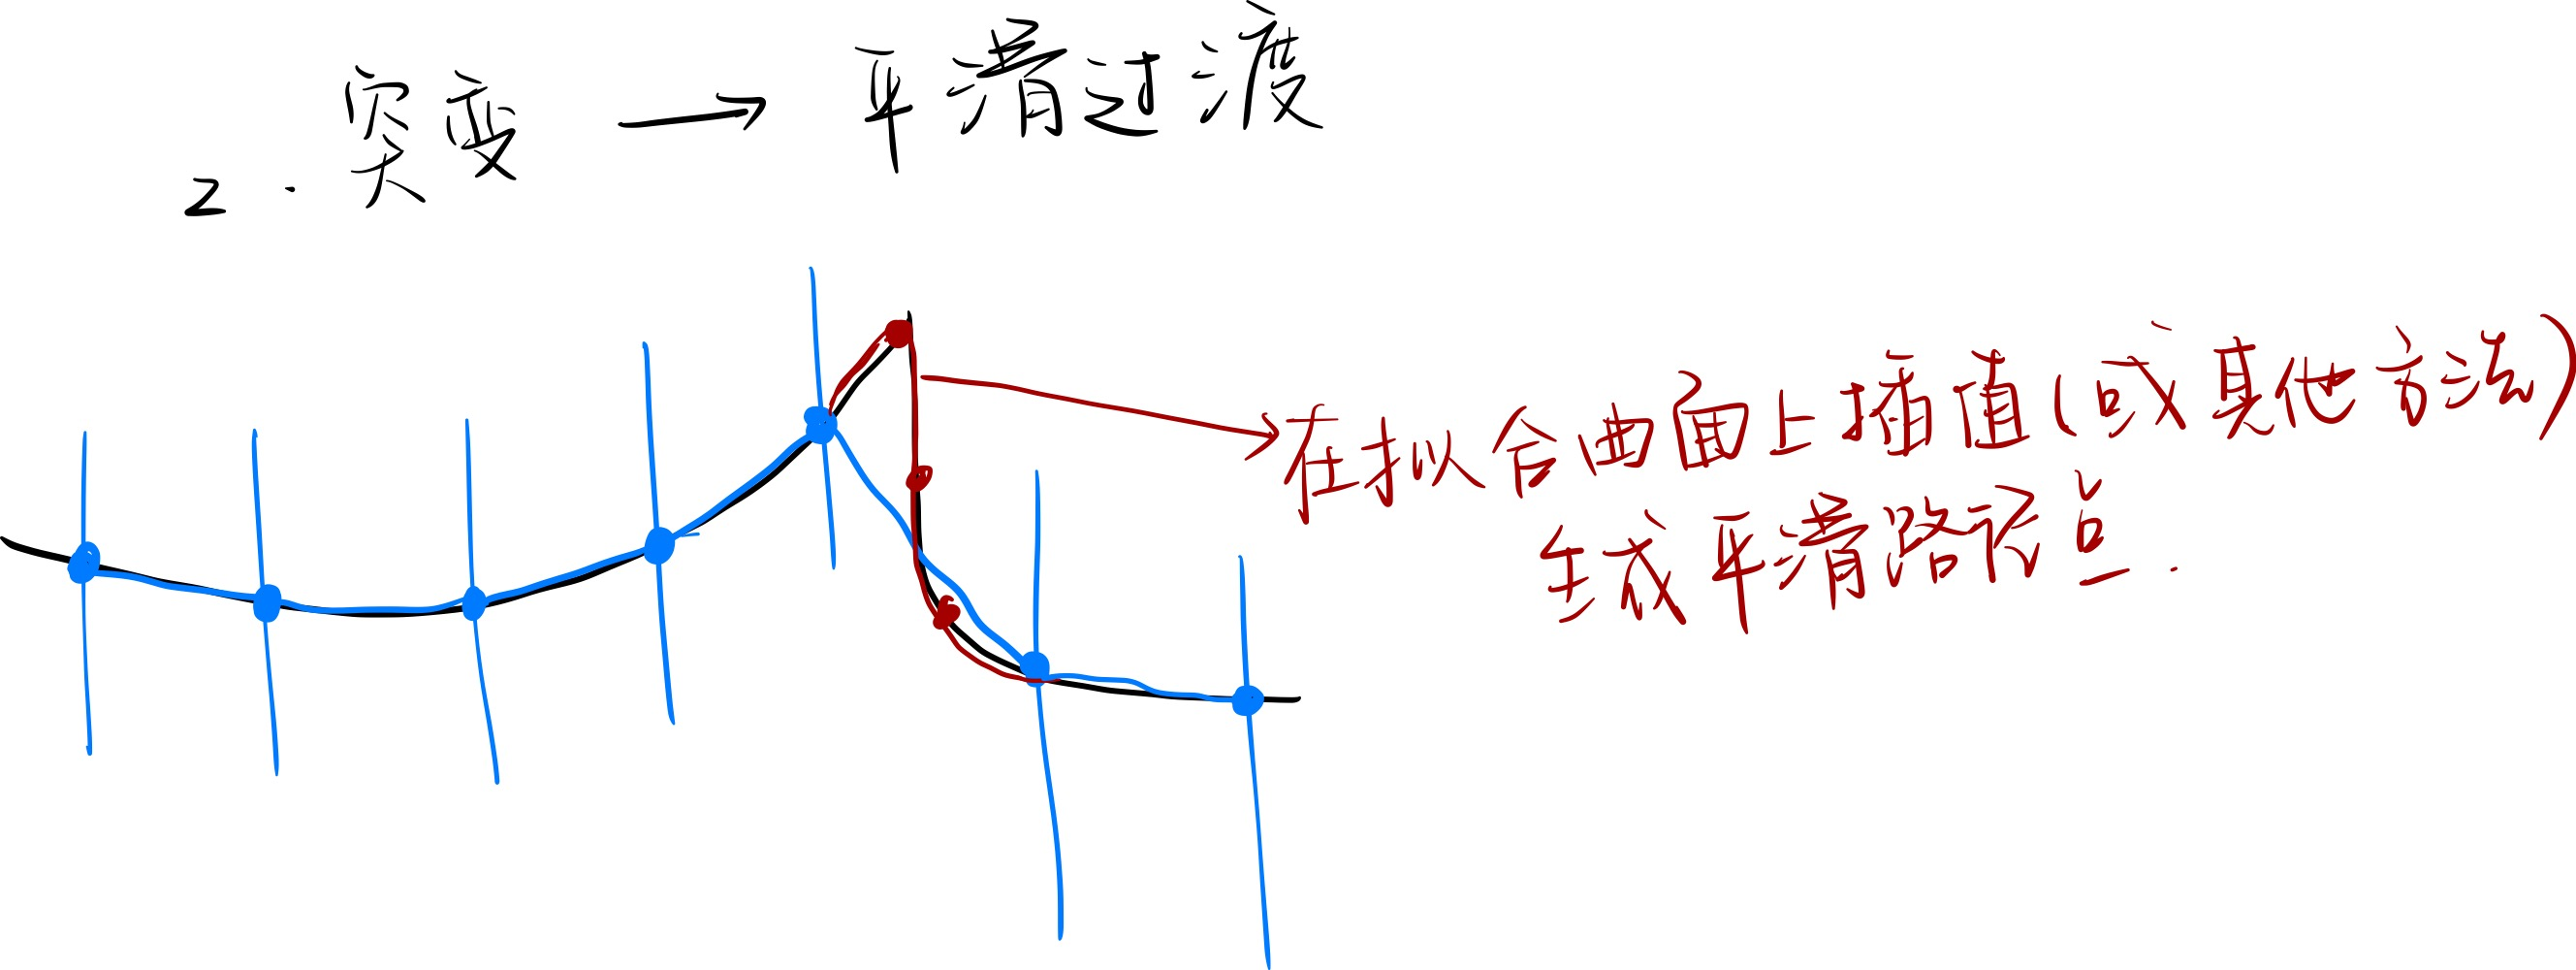 2. 突变 → 平滑过渡
在拟合曲面上插值(或其他方法)
生成平滑路径点.